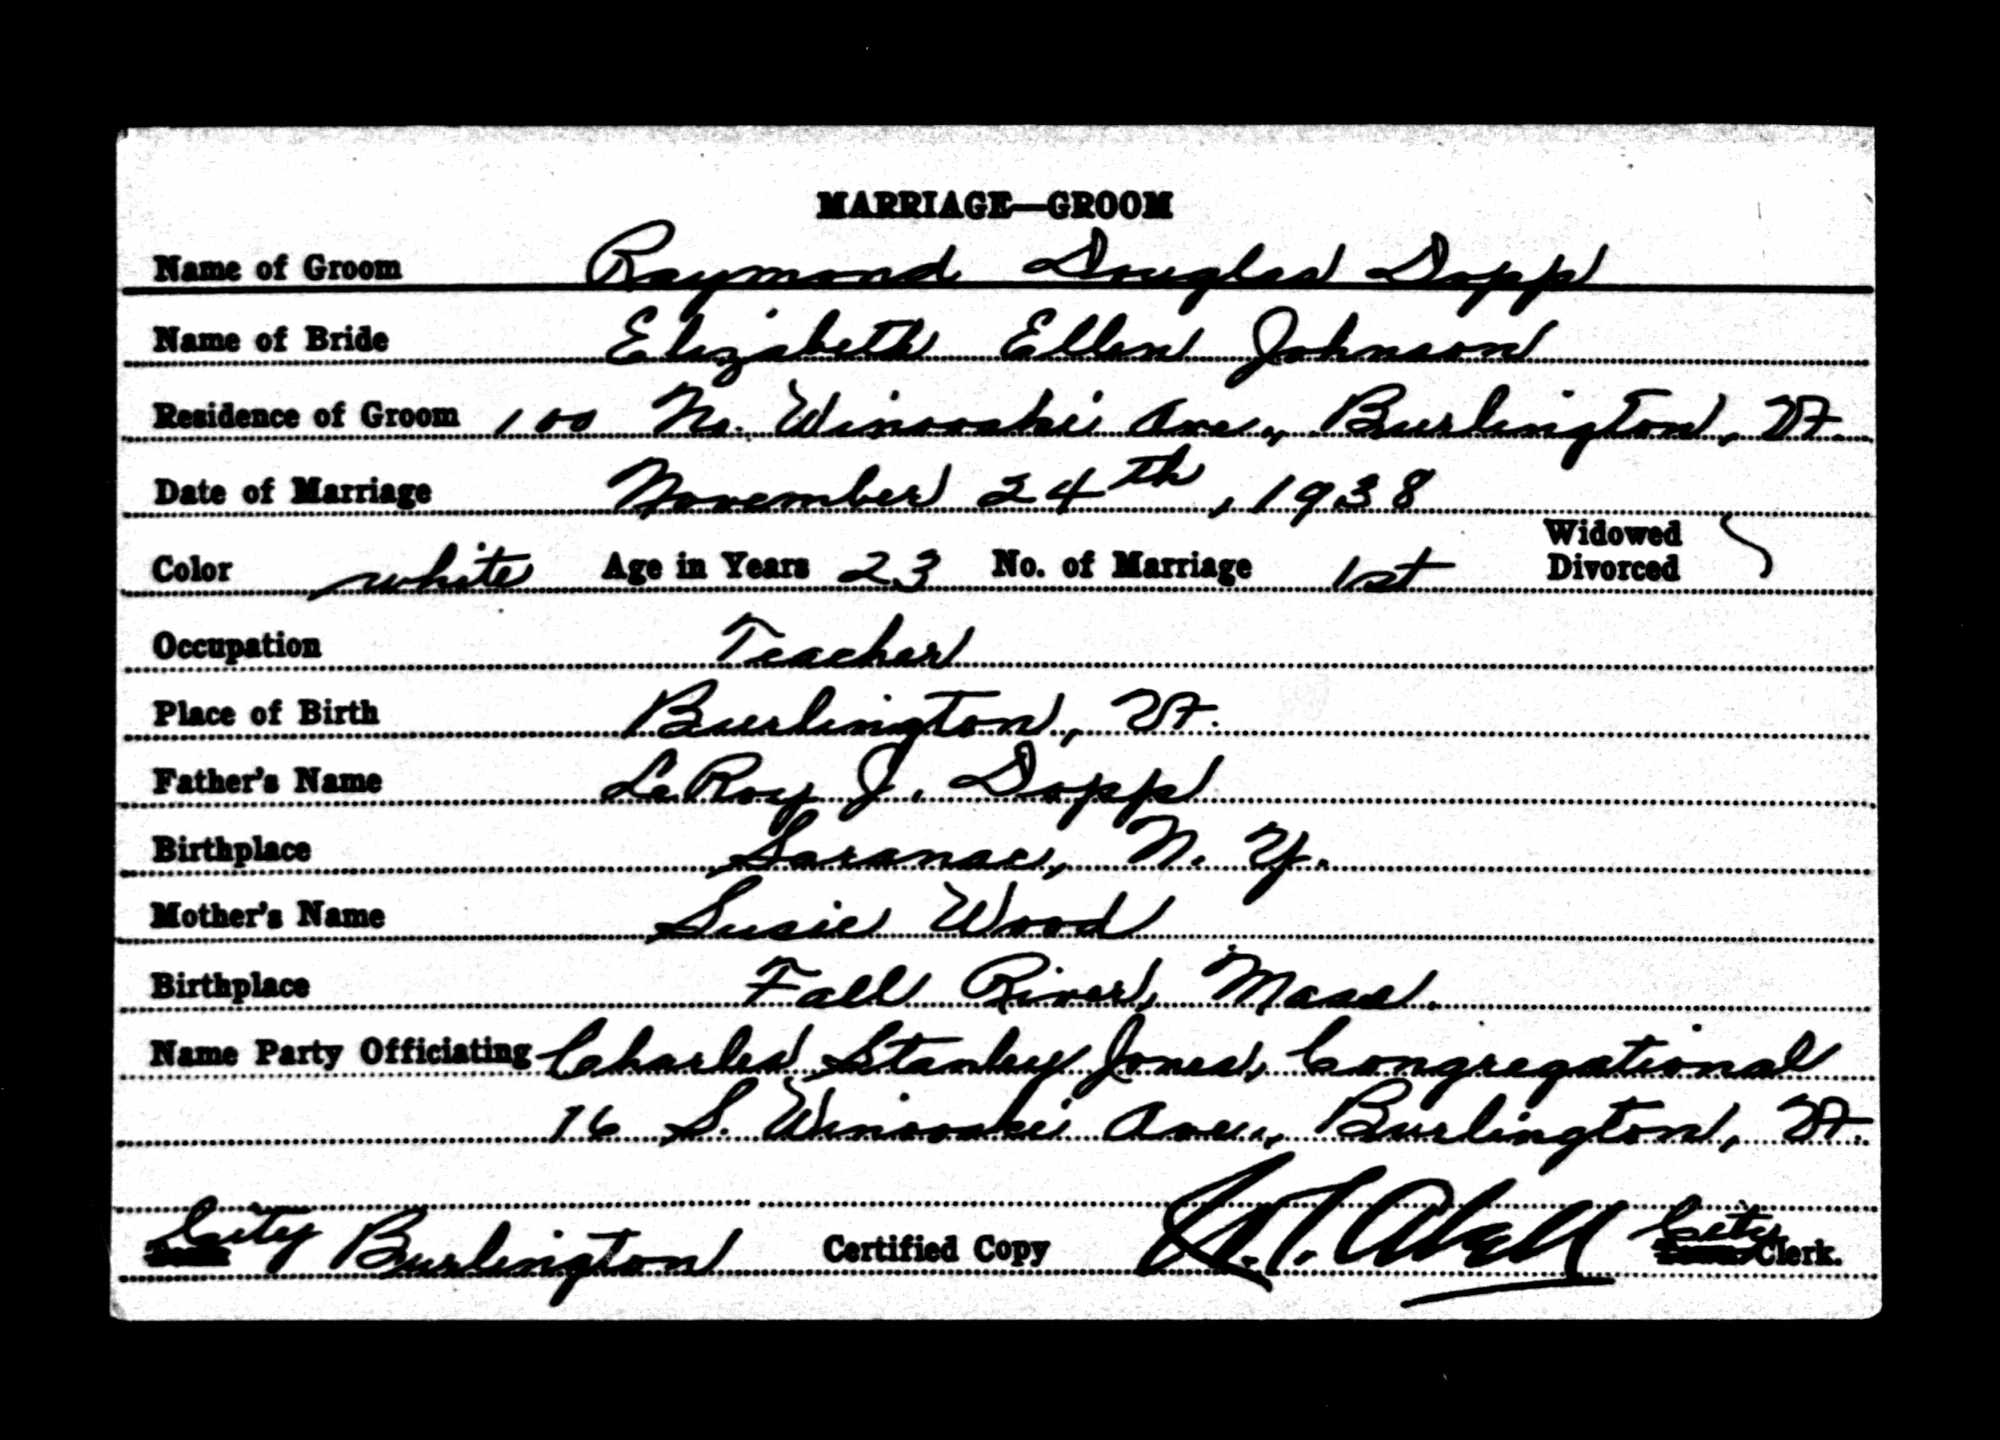 MARRIAGE—GROOM
Name of Groom Raymond Douglas Dopp
Name of Bride Elizabeth Ellen Johnson
Residence of Groom 100 No. Winooski Ave., Burlington, Vt.
Date of Marriage November 24th, 1938
Color white Age in Years 23 No. of Marriage 1st Widowed Divorced
Occupation Teacher
Place of Birth Burlington, Vt.
Father's Name LeRoy J. Dopp
Birthplace Saranac, N. Y.
Mother's Name Susie Wood
Birthplace Fall River, Mass.
Name Party Officiating Charles Stanley Jones, Congregational
16 S. Winooski Ave., Burlington, Vt.
City Burlington Certified Copy Abell City Clerk.